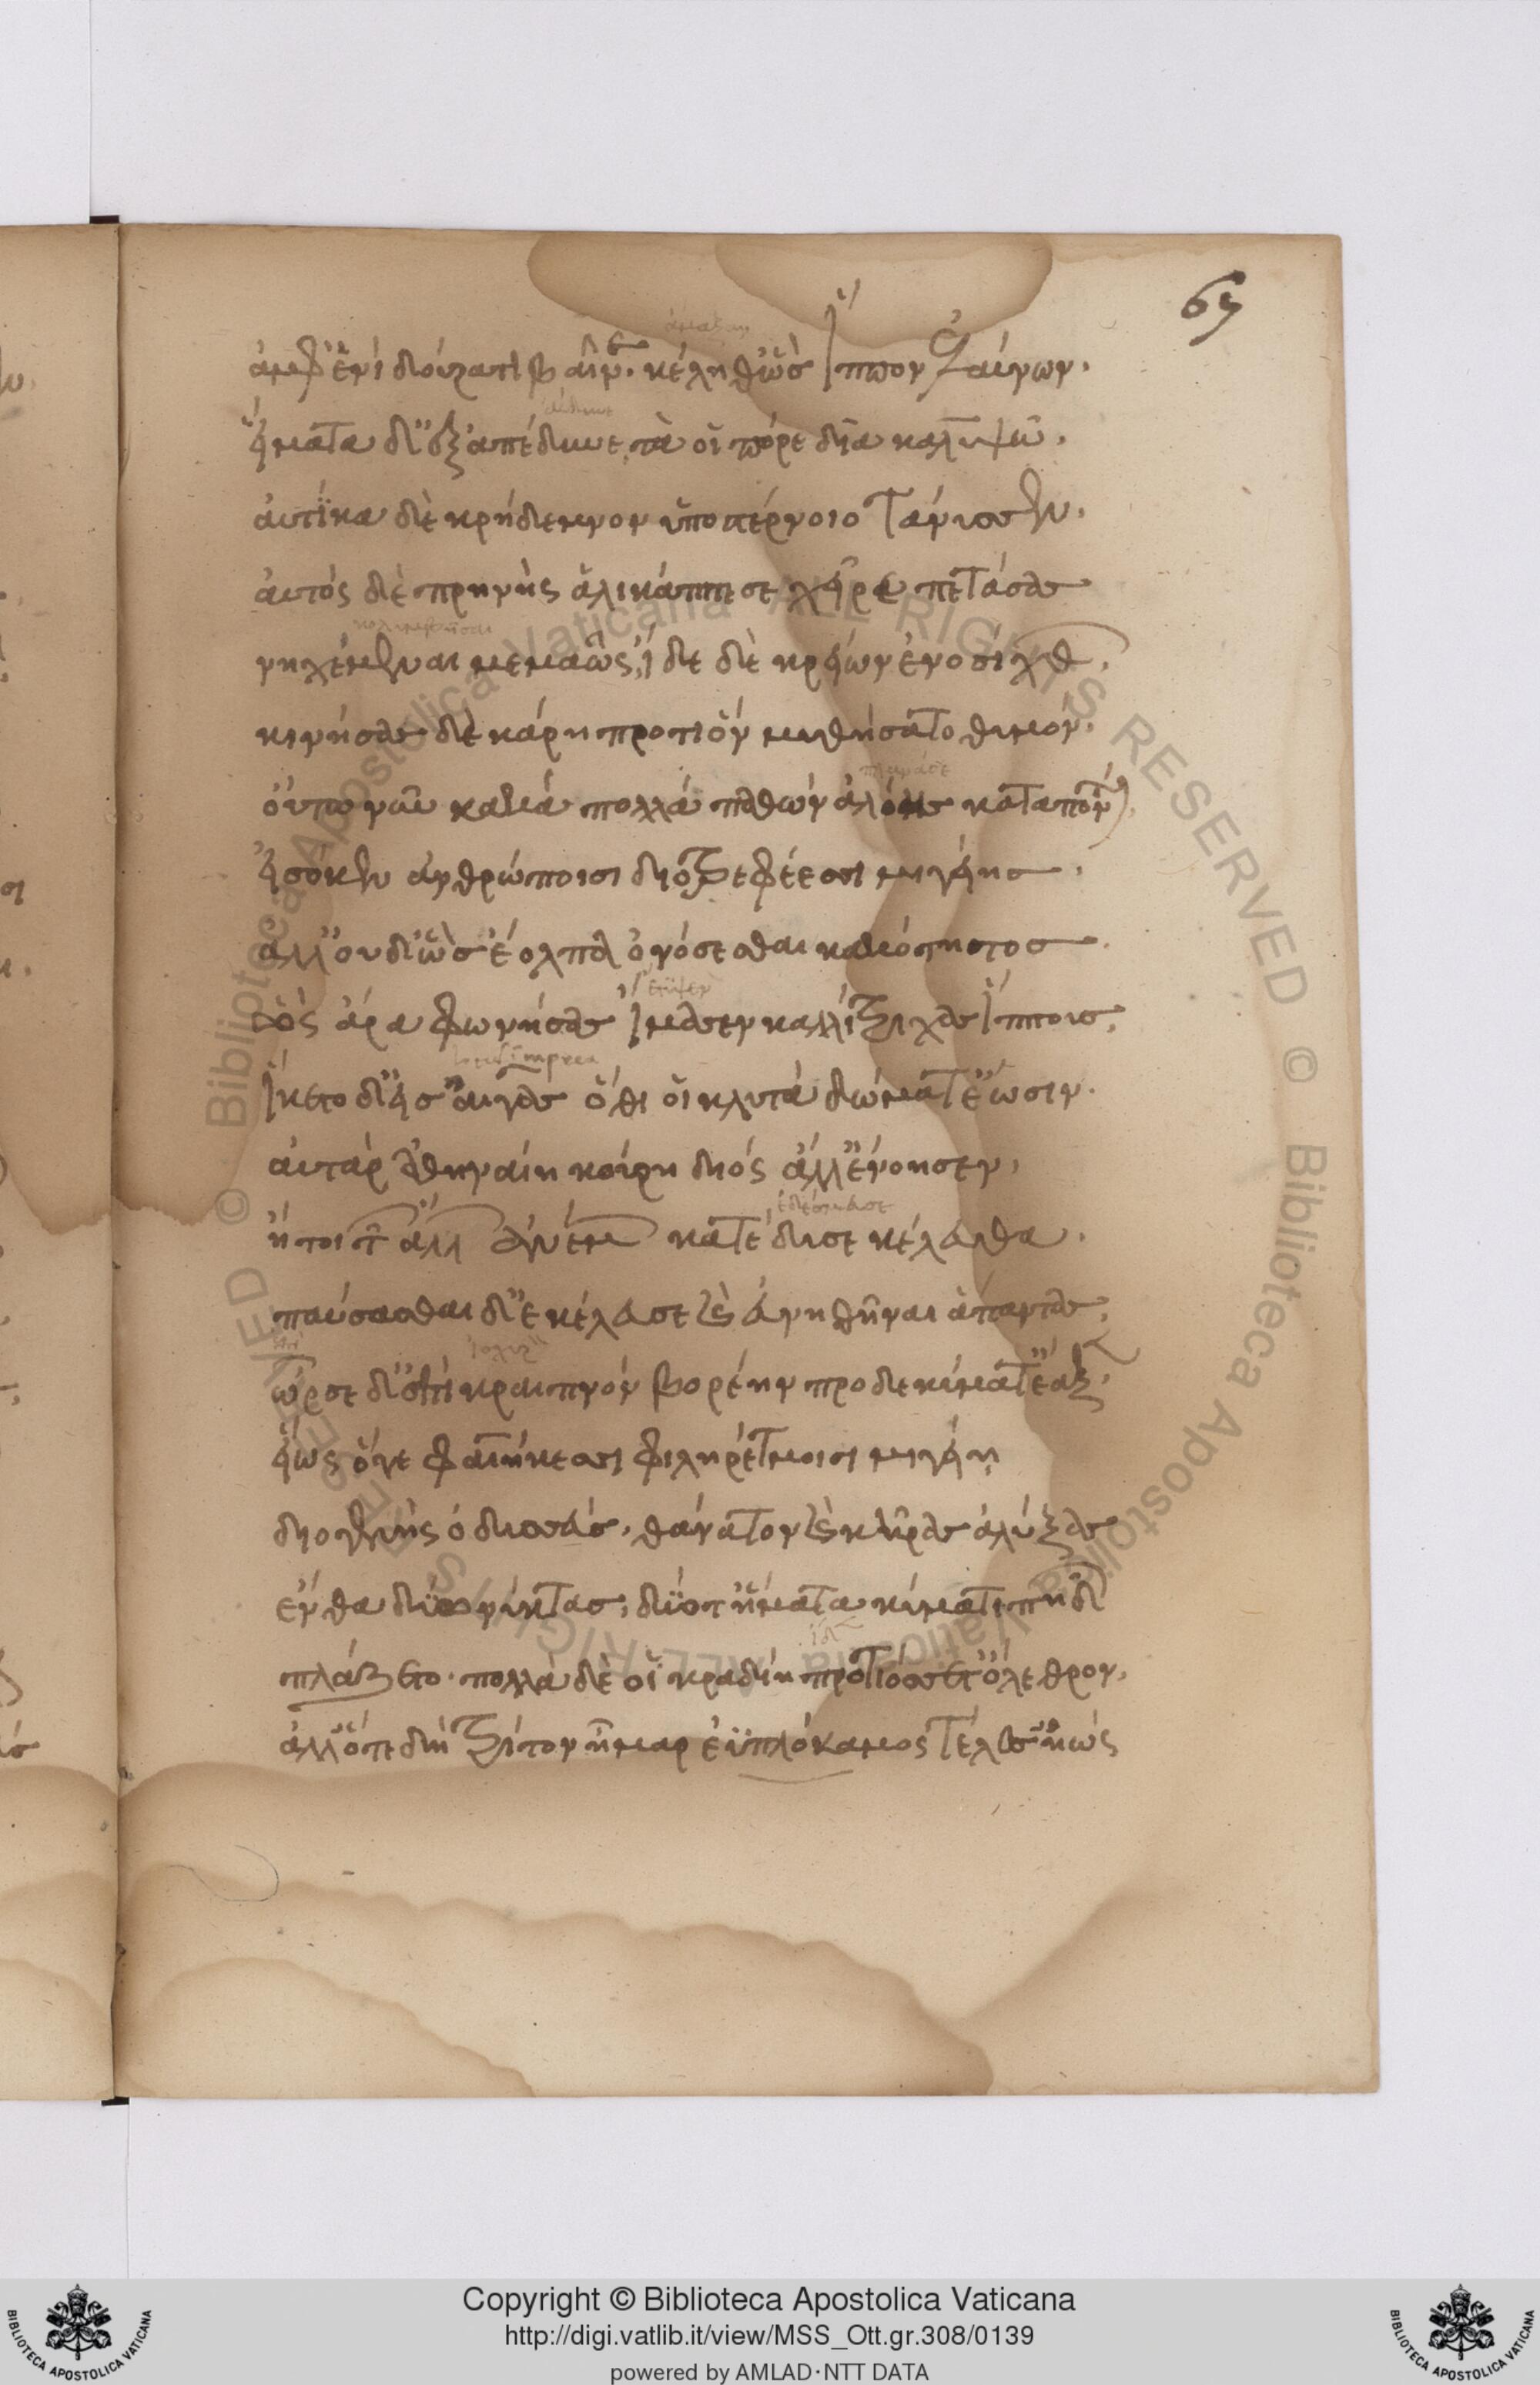 65
ἀμφ' ἑνὶ δούρατι βαῖνε. κέληθ' ὣς ἵππον ἐλαύνων.
εἵματα δ' ἐξ ἀπέδυνε, τὰ οἱ πόρε δῖα καλυψώ.
ἀυτίκα δὲ κρήδεμνον ὑπο στέρνοιο τάνυσσεν.
ἀυτὸς δὲ πρηνὴς ἁλι κάππεσε χεῖρε πετάσας
κολυμβῆσαι
νηχέμεναι μεμαῶς, ἴδε δὲ κρείων ἐνοσίχθων.
κινήσας δὲ κάρη προτι ὃν μυθήσατο θυμόν.
οὕτω νῦν κακὰ πολλὰ παθὼν ἀλόω κατα πόντον.
εἰσόκεν ἀνθρώποισι διοτρεφέεσσι μιγείης.
ἀλλ' ουδ' ὣς ἔολπα ὀνόσσεσθαι κακότητος
ὣς ἄρα φωνήσας ἵμασεν καλλίτριχας ἵππους.
ἵκετο δ' εἰς αἰγὰς ὅθι οἱ κλυτὰ δώματ' ἔωσιν.
ἀυτὰρ ἀθηναίη κούρη διός ἄλλ' ἐνόησεν.
ἤτοι τῶν ἄλλων ἀνέμων κατέδυσε κέλευθα.
παύσασθαι δ' ἐκέλευσε καὶ εὐνηθῆναι ἅπαντας.
ὦρσε δ' ἐπὶ κραιπνὸν βορέην προ δε κύματ' ἔαξεν.
εἵως ὅγε φαιήκεσσι φιληρέτμοισι μιγείη
διογενὴς ὀδυσσεύς. θάνατον καὶ κῆρας ἀλύξας
ἔνθα δύω νύκτας, δύο τ' ἤματα κύματι πηγῷ
πλάζετο. πολλὰ δὲ οἱ κραδίη προτιόσσετ' ὄλεθρον.
ἀλλ' ὅτε δὴ τρίτον ἦμαρ ἐϋπλόκαμος τέλεσ' ἠὼς
Copyright © Biblioteca Apostolica Vaticana
http://digi.vatlib.it/view/MSS_Ott.gr.308/0139
powered by AMLAD·NTT DATA
BIBLIOTECA APOSTOLICA VATICANA
BIBLIOTECA APOSTOLICA VATICANA
© Biblioteca Apostolica Vaticana ALL RIGHTS RESERVED
© Biblioteca Apostolica Vaticana ALL RIGHTS RESERVED